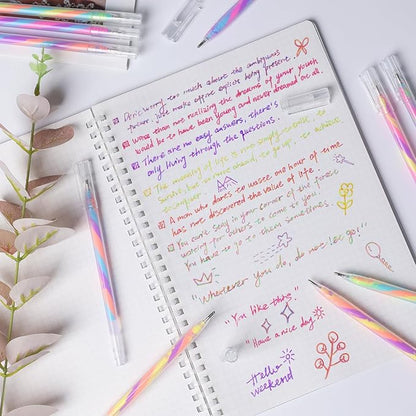 Don't worry too much about the ambiguous
future, just make effort explicit being present.
Worse than not realizing the dreams of your youth
would be to have been young and never dreamed at all.
There are no easy answers, there's
only living through the questions.
The meaning of life is not simply to exist, to
survive, but to move ahead, to go up, to achieve,
to conquer.
A man who dares to waste one hour of time
has not discovered the value of life.
You can't stay in your corner of the forest
waiting for others to come to you.
You have to go to them sometimes.
"Whenever you do, do not let go!"
"You like this"
"Have a nice day"
Hello
weekend